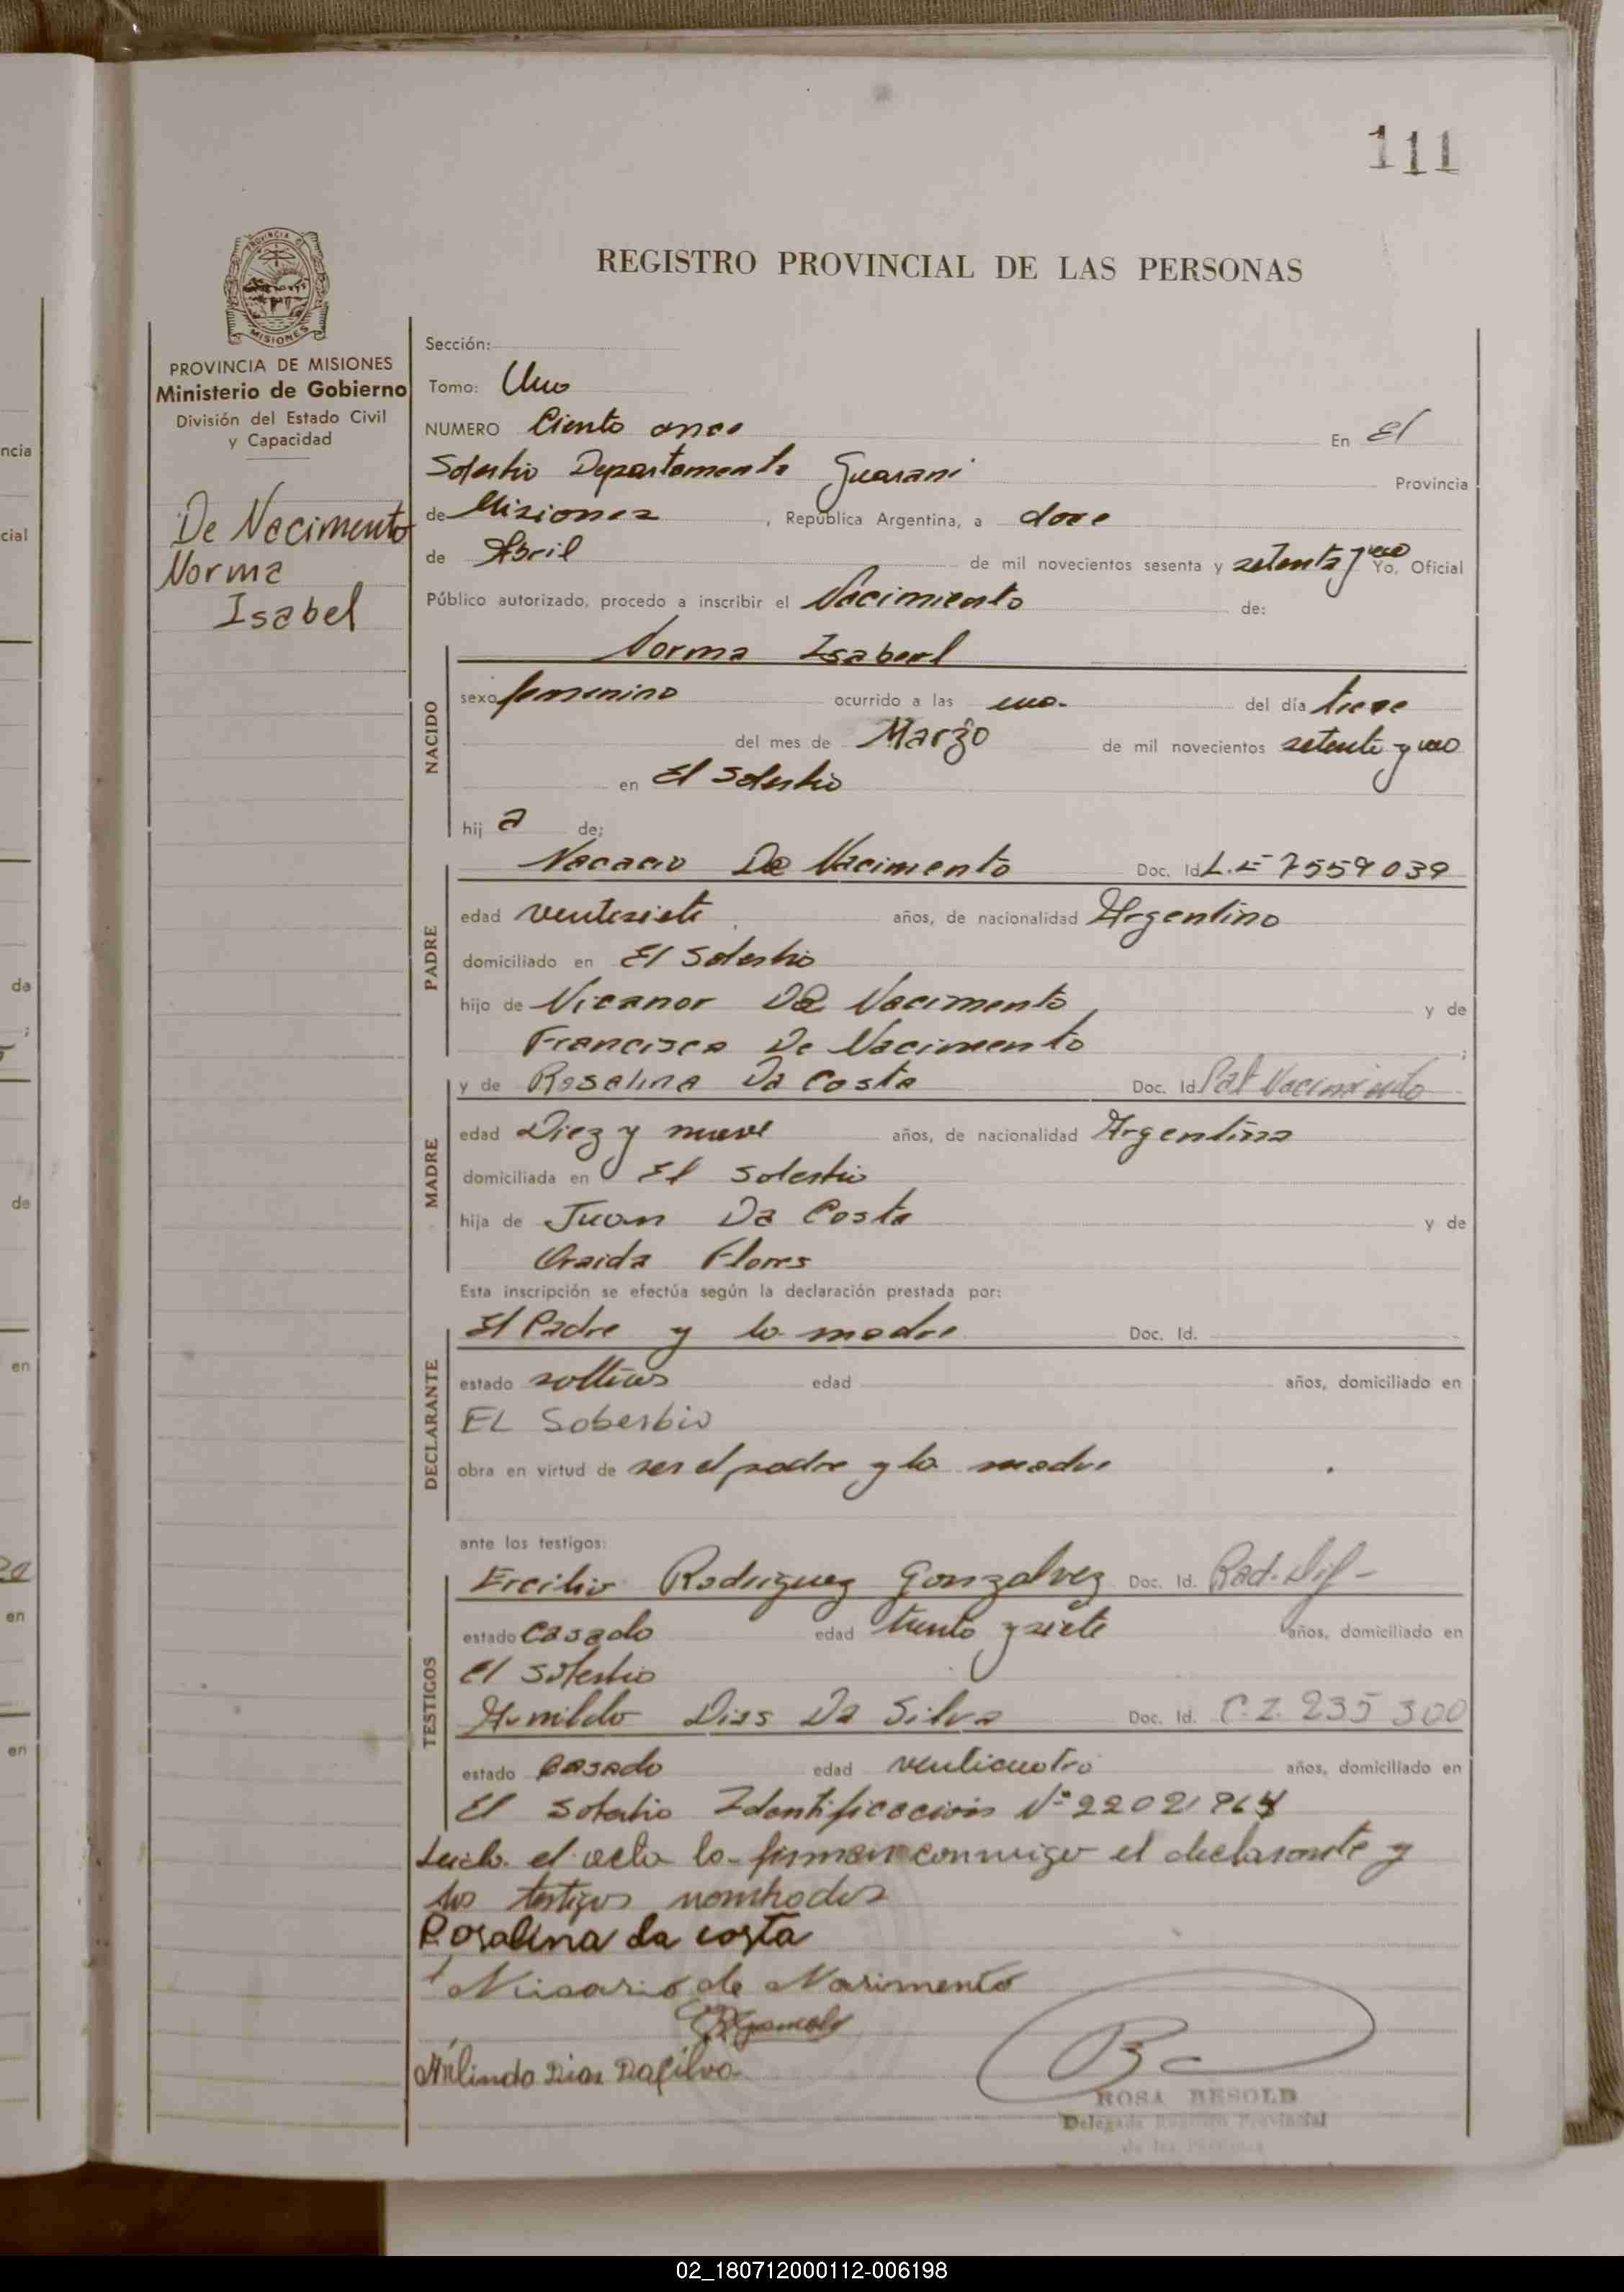 111
REGISTRO PROVINCIAL DE LAS PERSONAS
PROVINCIA DE MISIONES
Ministerio de Gobierno
División del Estado Civil
y Capacidad
De Nacimento
Norma
Isabel
Sección:
Tomo: Uno
NUMERO Ciento once En El
Soberbio Departamento Guarani Provincia
de Misiones, República Argentina, a doce
de Abril de mil novecientos sesenta y setenta y uno Yo, Oficial
Público autorizado, procedo a inscribir el Nacimiento de:
NACIDO
Norma Isabel
sexo femenino ocurrido a las una del día trece
del mes de Marzo de mil novecientos setenta y uno
en El Soberbio
hij a de:
PADRE
De Nacimento Doc. Id L.E 7559039
edad ventisiete años, de nacionalidad Argentino
domiciliado en El Soberbio
hijo de Nicanor De Nacimento y de
Francisca De Nacimento ;
MADRE
y de Rosalina Da Costa Doc. Id. Nacimiento
edad Diez y nueve años, de nacionalidad Argentina
domiciliada en El Soberbio
hija de Juan Da Costa y de
Flores
Esta inscripción se efectúa según la declaración prestada por:
DECLARANTE
El Padre y la madre Doc. Id.
estado solteros edad años, domiciliado en
EL Soberbio
obra en virtud de ser el padre y la madre
ante los testigos:
TESTIGOS
Ercilio Rodriguez Gonzalvez Doc. Id. Rad. Dif-
estado casado edad trenta y siete años, domiciliado en
El Soberbio
Dias Da Silva Doc. Id. C.I. 235300
estado casado edad venticuatro años, domiciliado en
El Soberbio Identificación Nº
Leida el acta la firman conmigo el declarante y
los testigos nombrados
Rosalina da costa
de Nasimento
Arlindo Dias Da Silva
ROSA BESOLD
Delegada Registro Provincial
de las Personas
ncia
cial
da
de
en
en
en
02_180712000112-006198